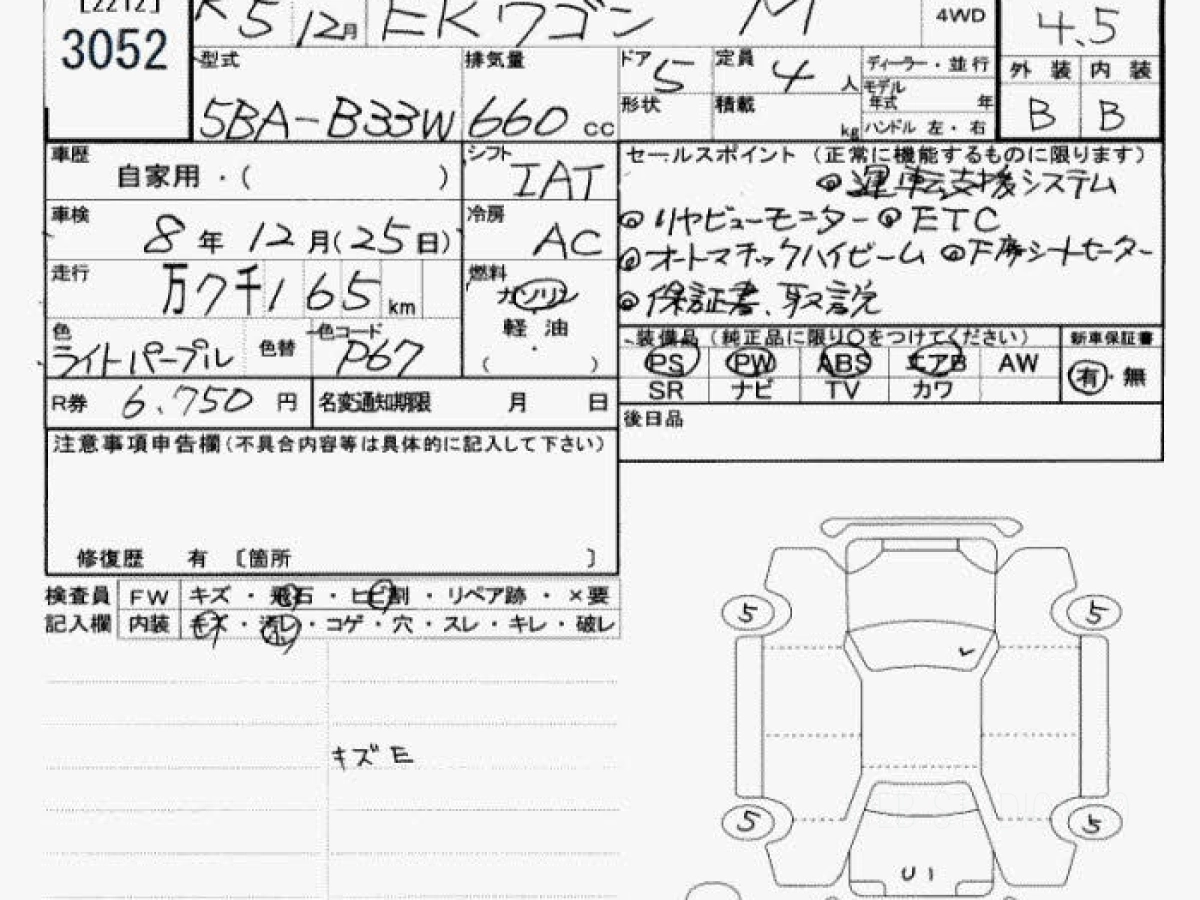 [2212]
3052
R 5 12月 EKワゴン M 4WD 4.5
型式 5BA-B33W
排気量 660 cc
ドア 5 定員 4 人
形状 積載 kg
ディーラー・並行
モデル年式 年
ハンドル 左・右
外装 内装
B B
車歴 自家用・( )
シフト IAT
車検 8年 12月(25日)
冷房 AC
走行 万7千165km
燃料 ガソリン
軽油
( ・ )
色 ライトパープル 色替 色コード P67
R券 6.750 円 名変通知期限 月 日
セールスポイント (正常に機能するものに限ります)
◎運転支援システム
◎リヤビューモニター ◎ETC
◎オートマチックハイビーム ◎下席シートヒーター
◎保証書、取説
装備品 (純正品に限り○をつけてください) 新車保証書
PS PW ABS エアB AW 有・無
SR ナビ TV カワ
後日品
注意事項申告欄(不具合内容等は具体的に記入して下さい)
修復歴 有 〔箇所 〕
検査員 FW キズ・飛石・ヒビ割・リペア跡・×要
記入欄 内装 キズ・汚レ・コゲ・穴・スレ・キレ・破レ
小
キズE
5 5
5 5
U1